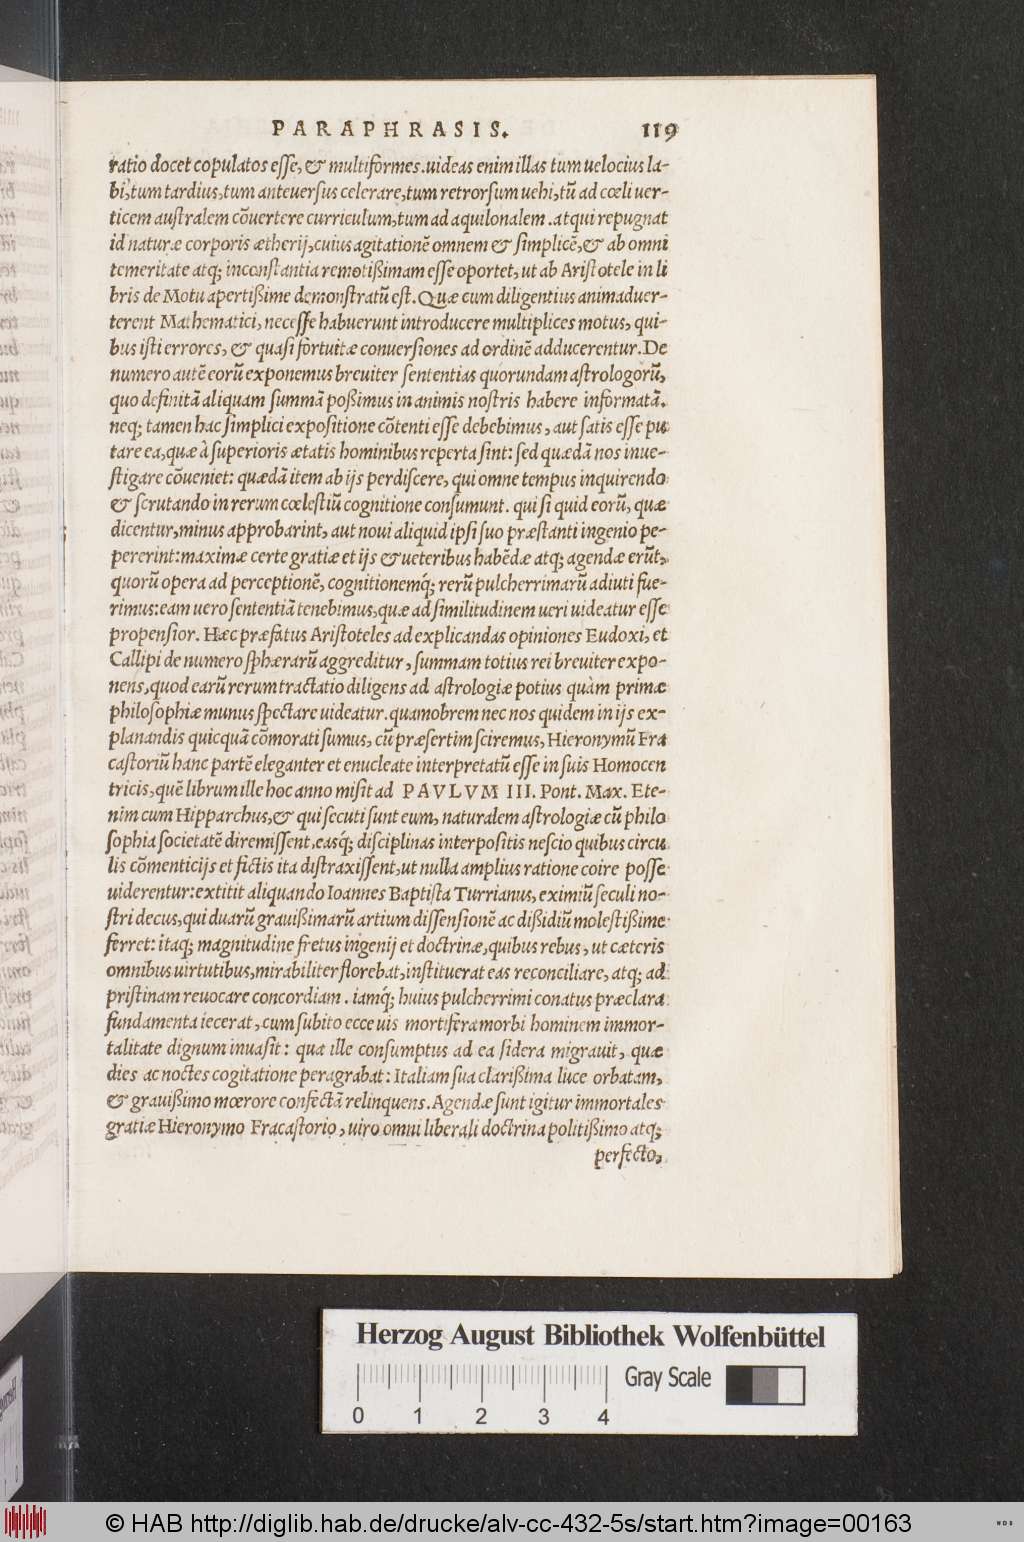 PARAPHRASIS. 119
ratio docet copulatos esse, & multiformes. uideas enim illas tum uelocius la-
bi, tum tardius, tum anteuersus celerare, tum retrorsum uehi, tũ ad cœli uer-
ticem australem cõuertere curriculum, tum ad aquilonalem. atqui repugnat
id naturæ corporis ætherij, cuius agitationẽ omnem & simplicẽ, & ab omni
temeritate atq; inconstantia remotißimam esse oportet, ut ab Aristotele in li
bris de Motu apertißime demonstratũ est. Quæ cum diligentius animaduer-
terent Mathematici, necesse habuerunt introducere multiplices motus, qui-
bus isti errores, & quasi fortuitæ conuersiones ad ordinẽ adducerentur. De
numero autẽ eorũ exponemus breuiter sententias quorundam astrologorũ,
quo definitã aliquam summã poßimus in animis nostris habere informatã.
neq; tamen hac simplici expositione cõtenti esse debebimus, aut satis esse pu
tare ea, quæ à superioris ætatis hominibus reperta sint: sed quædã nos inue-
stigare cõueniet: quædã item ab ijs perdiscere, qui omne tempus inquirendo
& scrutando in rerum cœlestiũ cognitione consumunt. qui si quid eorũ, quæ
dicentur, minus approbarint, aut noui aliquid ipsi suo præstanti ingenio pe-
pererint: maximæ certe gratiæ et ijs & ueteribus habẽdæ atq; agendæ erũt,
quorũ opera ad perceptionẽ, cognitionemq́; rerũ pulcherrimarũ adiuti fue-
rimus: eam uero sententiã tenebimus, quæ ad similitudinem ueri uideatur esse
propensior. Hæc præfatus Aristoteles ad explicandas opiniones Eudoxi, et
Callipi de numero sphærarũ aggreditur, summam totius rei breuiter expo-
nens, quod earũ rerum tractatio diligens ad astrologiæ potius quàm primæ
philosophiæ munus spectare uideatur. quamobrem nec nos quidem in ijs ex-
planandis quicquã cõmorati sumus, cũ præsertim sciremus, Hieronymũ Fra
castoriũ hanc partẽ eleganter et enucleate interpretatũ esse in suis Homocen
tricis, quẽ librum ille hoc anno misit ad PAVLVM III. Pont. Max. Ete-
nim cum Hipparchus, & qui secuti sunt eum, naturalem astrologiæ cũ philo
sophia societatẽ diremissent, easq́; disciplinas interpositis nescio quibus circu
lis cõmenticijs et fictis ita distraxissent, ut nulla amplius ratione coire posse
uiderentur: extitit aliquando Ioannes Baptista Turrianus, eximiũ seculi no-
stri decus, qui duarũ grauißimarũ artium dissensionẽ ac dißidiũ molestißime
ferret: itaq; magnitudine fretus ingenij et doctrinæ, quibus rebus, ut cæteris
omnibus uirtutibus, mirabiliter florebat, instituerat eas reconciliare, atq; ad
pristinam reuocare concordiam. iamq́; huius pulcherrimi conatus præclara
fundamenta iecerat, cum subito ecce uis mortifera morbi hominem immor-
talitate dignum inuasit: qua ille consumptus ad ea sidera migrauit, quæ
dies ac noctes cogitatione peragrabat: Italiam sua clarißima luce orbatam,
& grauißimo mœrore confectã relinquens. Agendæ sunt igitur immortales
gratiæ Hieronymo Fracastorio, uiro omni liberali doctrina politißimo atq;
perfecto,
Herzog August Bibliothek Wolfenbüttel
Gray Scale
0 1 2 3 4
© HAB http://diglib.hab.de/drucke/alv-cc-432-5s/start.htm?image=00163